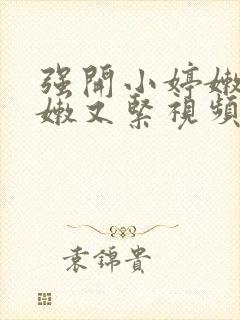 强開小婷嫩
嫩又緊視頻
袁錦貴